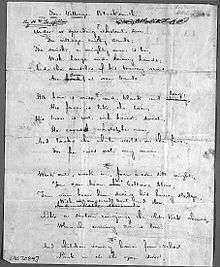 The Village Blacksmith
Under a spreading chestnut tree
The village smithy stands
The smith, a mighty man is he
With large and sinewy hands;
And the muscles of his brawny arms
Are strong as iron bands.
His hair is crisp, and black and long;
His face is like the tan;
His brow is wet with honest sweat,
He earns whate'er he can
And looks the whole world in the face,
For he owes not any man.
Week in, week out, from morn till night,
You can hear his bellows blow;
You can hear him swing his heavy sledge
With measured beat and slow
Like a sexton ringing the old kirk chimes,
When the evening sun is low
And children coming home from school
Look in at the open door;